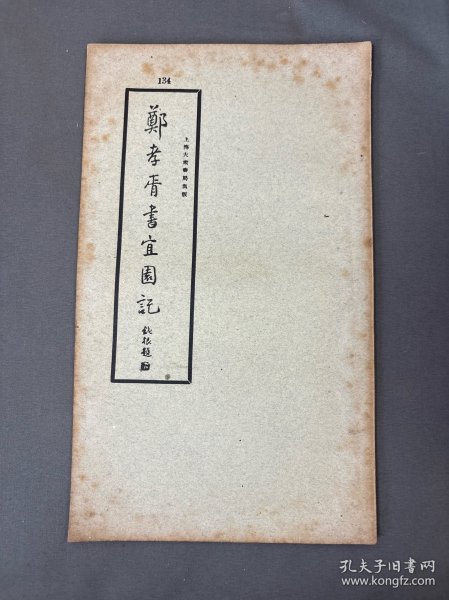 134
上海大衆書局出版
鄭孝胥書宜園記
鈍根題
孔夫子旧书网
www.kongfz.com